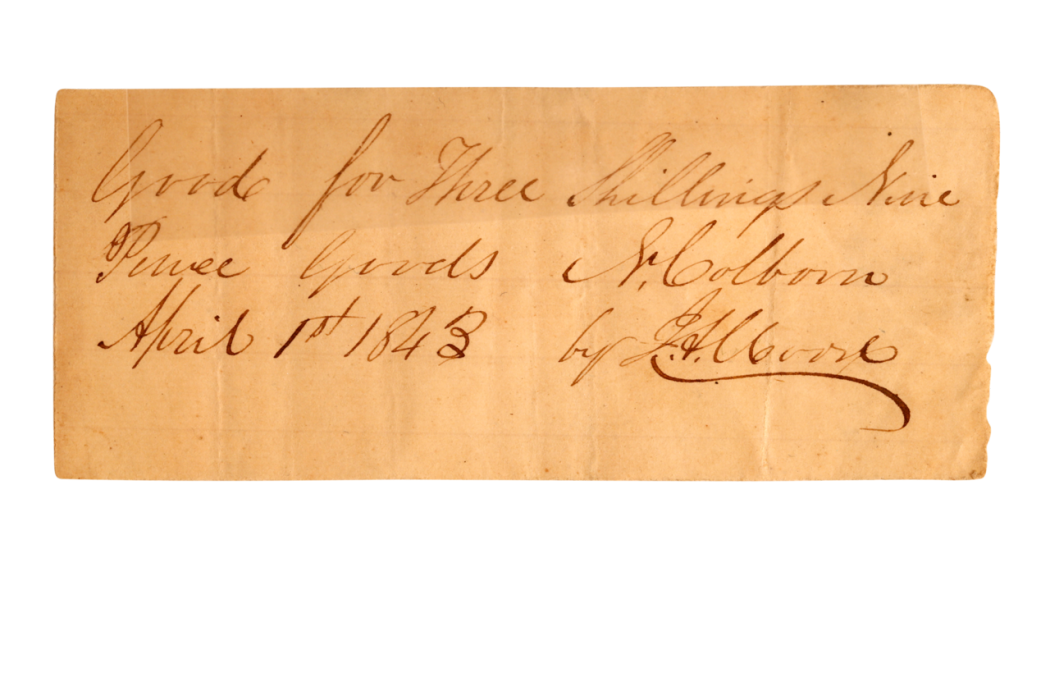 Good for Three Shillings Nine
Pence Goods N. Colborn
April 1st 1843 by J. A.